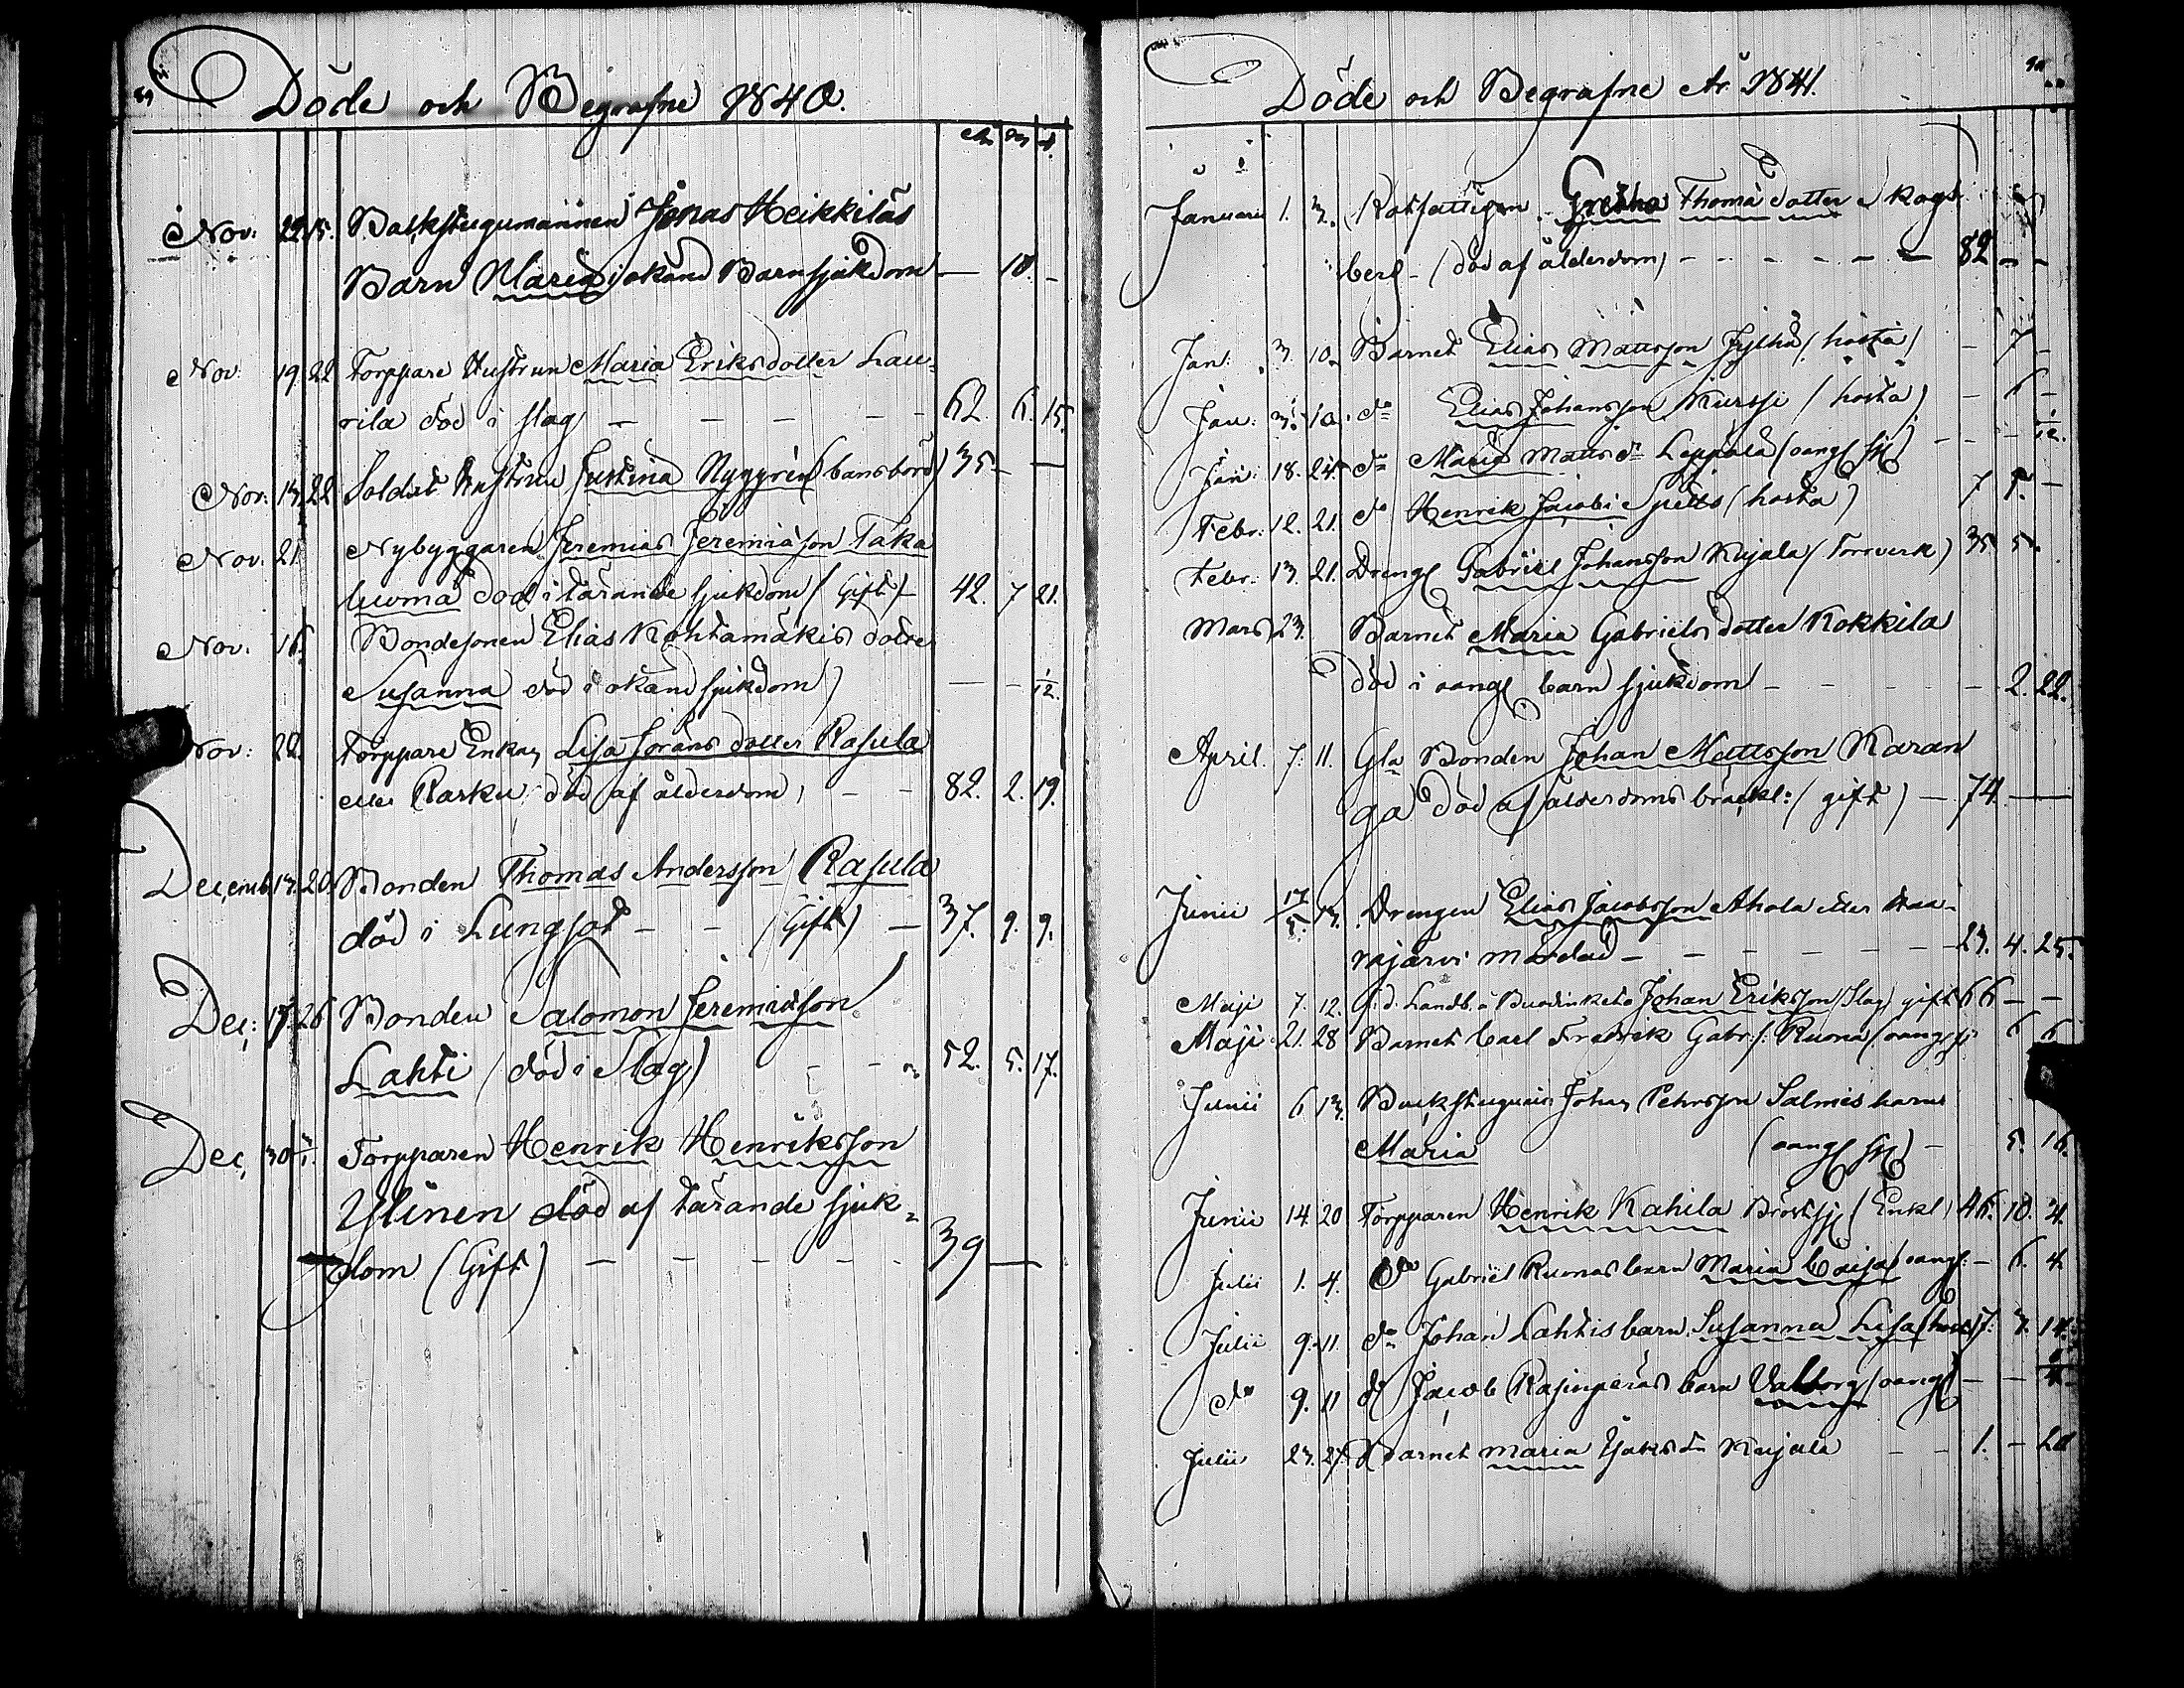 89
Döde och Begrafne 1840.
år m d
Nov: 22 15. Backstugumannen Jonas Heikkiläs
Barn Maria, okänd Barnsjukdom — 10. —
Nov: 19 22 Torppare Hustrun Maria Eriksdotter Lau-
rila död i slag — — — — 62. 6. 15.
Nov: 13 22 Soldat Hustrun Justina Nyggrén (barnsbörd) 35 — —
Nov: 21 Nybyggaren Jeremias Jeremiasson Taka
luoma död i tärande sjukdom (Gift) — 42. 7 21.
Nov: 16 Bondesonen Elias Kohtamäkis dotter
Susanna död i okänd sjukdom) — — 1/12.
Nov: 22. Torppare Enkan Lisa Göransdotter Rasula
eller Karku, död af ålderdom, — — 82. 2. 19.
Decemb 13. 20. Bonden Thomas Andersson Rasula
död i Lungsot — — (Gift) — 37. 9. 9.
Dec: 17 26 Bonden Salomon Jeremiasson
Lahti (död i Slag) — — 52. 5. 17.
Dec, 30 3/1. Torpparen Henrik Henriksson
Ylinen död af tärande sjuk-
dom (Gift) — — — — — 39 —
90
Döde och Begrafne År 1841.
Januarii 1. 3. Rotfattigen Gretha Thomädotter Skogs
berg — (död af ålderdom) — — — — — — 82 — —
Jan: 3. 10. Barnet Elias Mattsson Jylhä (hosta) — 7 —
Jan: 3. 10. do Elias Johansson Kurssi (hosta) — 6 —
Jan: 18. 24. do Maria Matts dr Leppälä (oangf sjd) — — — 1/12.
Febr: 12. 21. do Henrik Jacobi Spetts (hosta) 7 9. —
Febr: 13. 21. Dreng Gabriel Johansson Kujala (Torrverk) 35 5.
Mars 23. Barnet Maria Gabrielsdotter Kokkila
död i oangf barn sjukdom — — — — 2. 22.
April. 7. 11. Gla Bonden Johan Mattsson Karan
ga död af ålderdoms bräckl: (gift) — 74. —
Junii 17/5. 13. Drengen Elias Jacobsson Ahola eller Haa-
rajärvi mördad — — — — — 23. 4. 25.
Maji 7. 12. Johan Eriksson (Slag) gift 66 — —
Maji 21. 28 Barnet Carl Fredrik Gabr s: Ruona (oangf sj 6 6
Junii 6 13. Johan Pehrsson Salmis barn
Maria (oangf sjd) — 5. 16.
Junii 14. 20 Torpparen Henrik Kahila Bröstsj (Enkl) 46. 10. 4.
Julii 1. 4. do Gabriel Ruonas barn Maria Caisa (oangf: — 6. 4
Julii 9. 11. do Johan Lahtis barn Susanna Lisa (host) 7. 3. 14.
do 9. 11 do Jacob Rajinperäs barn Valborg (oangf) — —
Julii 23. 27. Barnet Maria Isaks dr Kujala — — 1. — 20